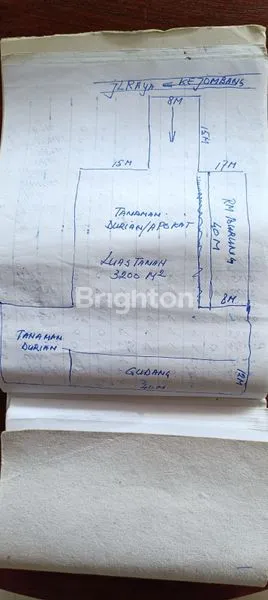 JL RAYA = KEJOMBANG
8M
15M
15M
17M
TANAMAN
DURIAN/APOKAT
RM BURUNG
40M
LUAS TANAH
3200 M²
Brighton
8M
TANAMAN
DURIAN
GUDANG
40M
12M